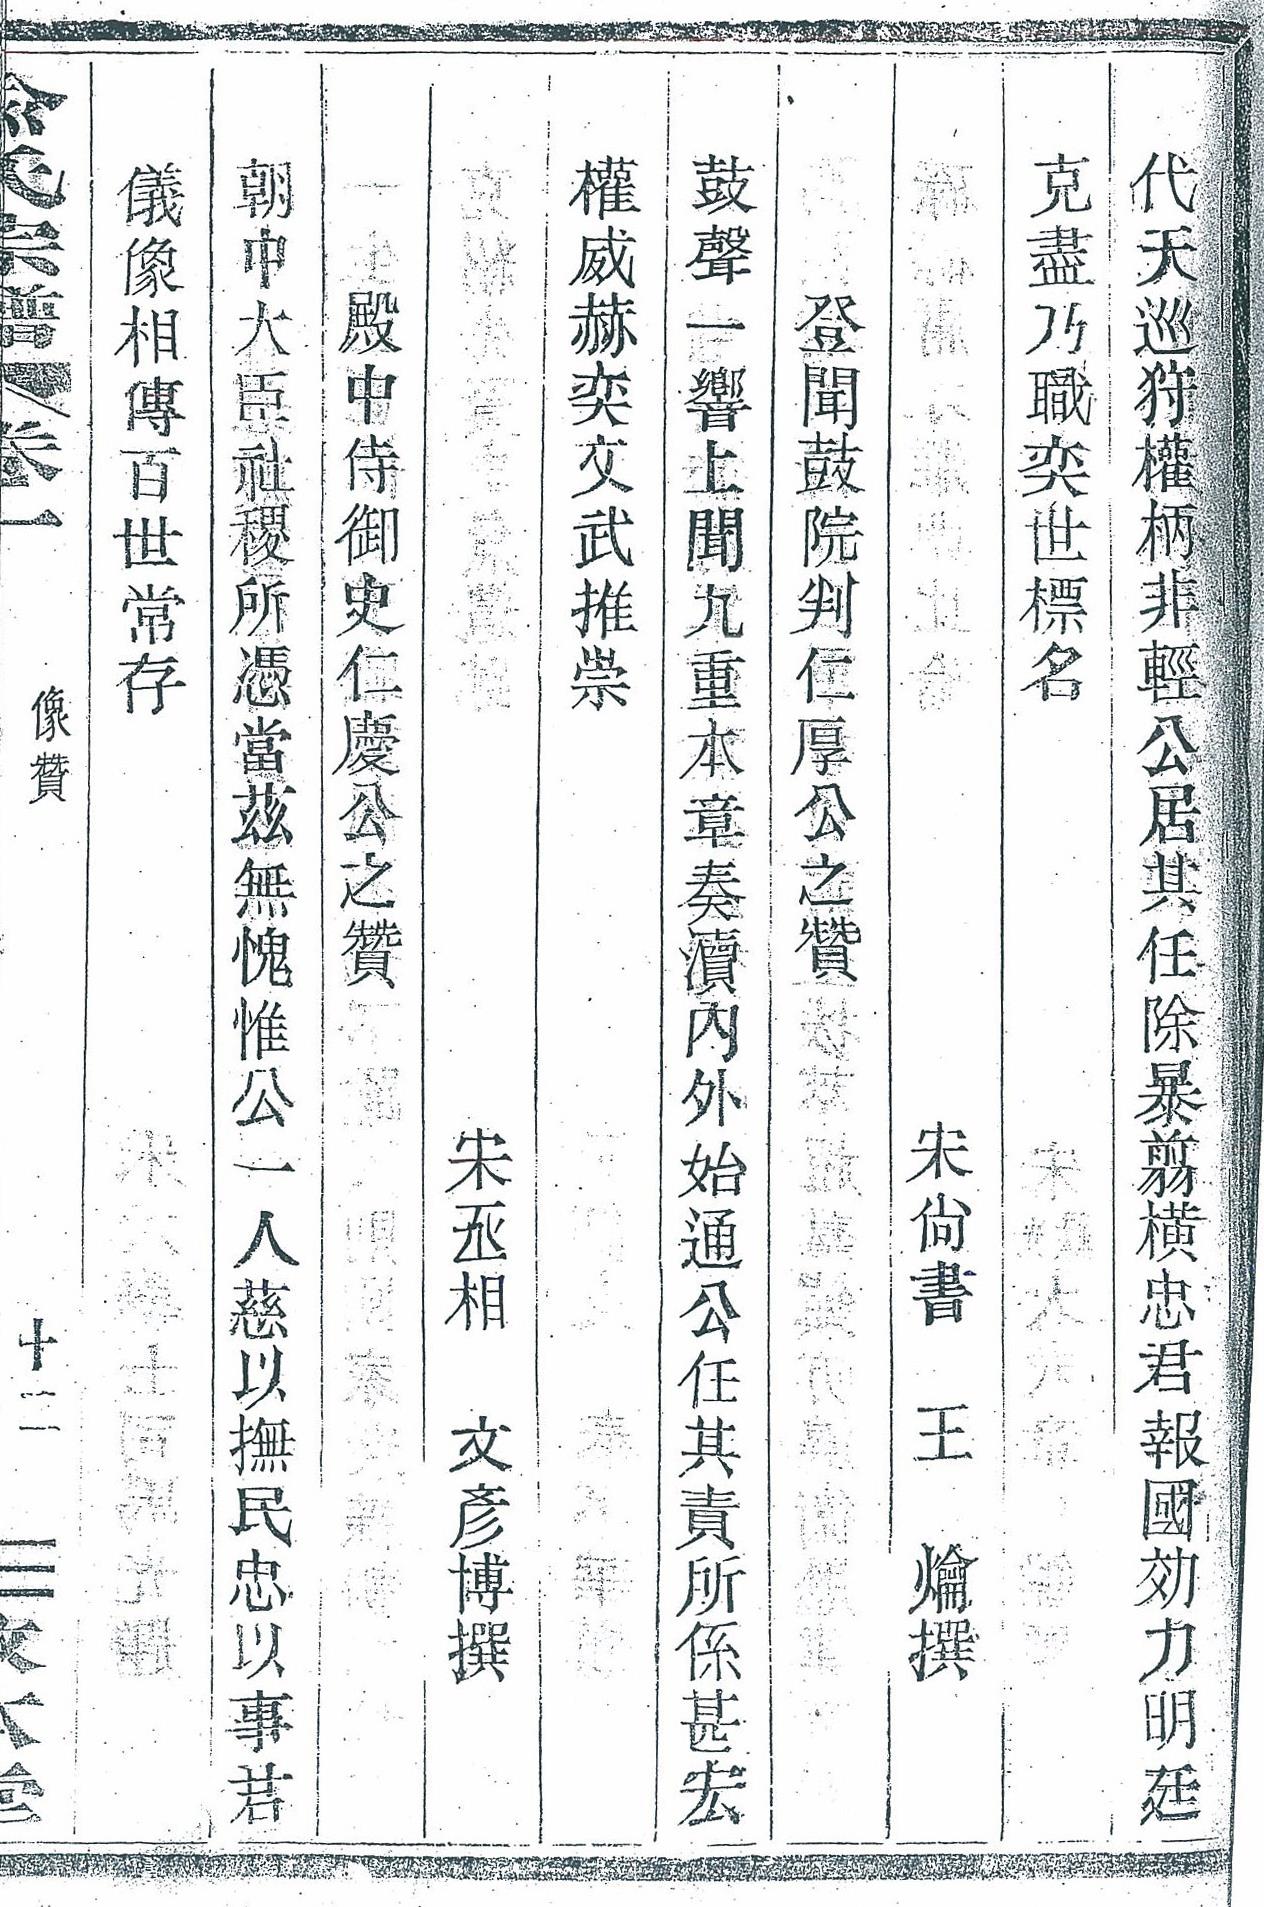 代天巡狩權柄非輕公居其任除暴翦橫忠君報國効力明廷
克盡乃職奕世標名
宋尙書　王　爚撰
登聞鼓院判仁厚公之贊
鼓聲一響上聞九重本章奏瀆內外始通公任其責所係甚宏
權威赫奕文武推崇
宋丞相　文彥博撰
殿中侍御史仁慶公之贊
朝中大臣社稷所憑當茲無愧惟公一人慈以撫民忠以事君
儀像相傳百世常存
氏宗譜　卷一　像贊　十二　本堂